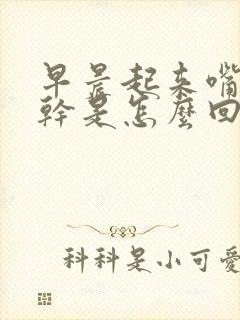 早晨起來嘴
幹是怎麼回
科科是小可愛